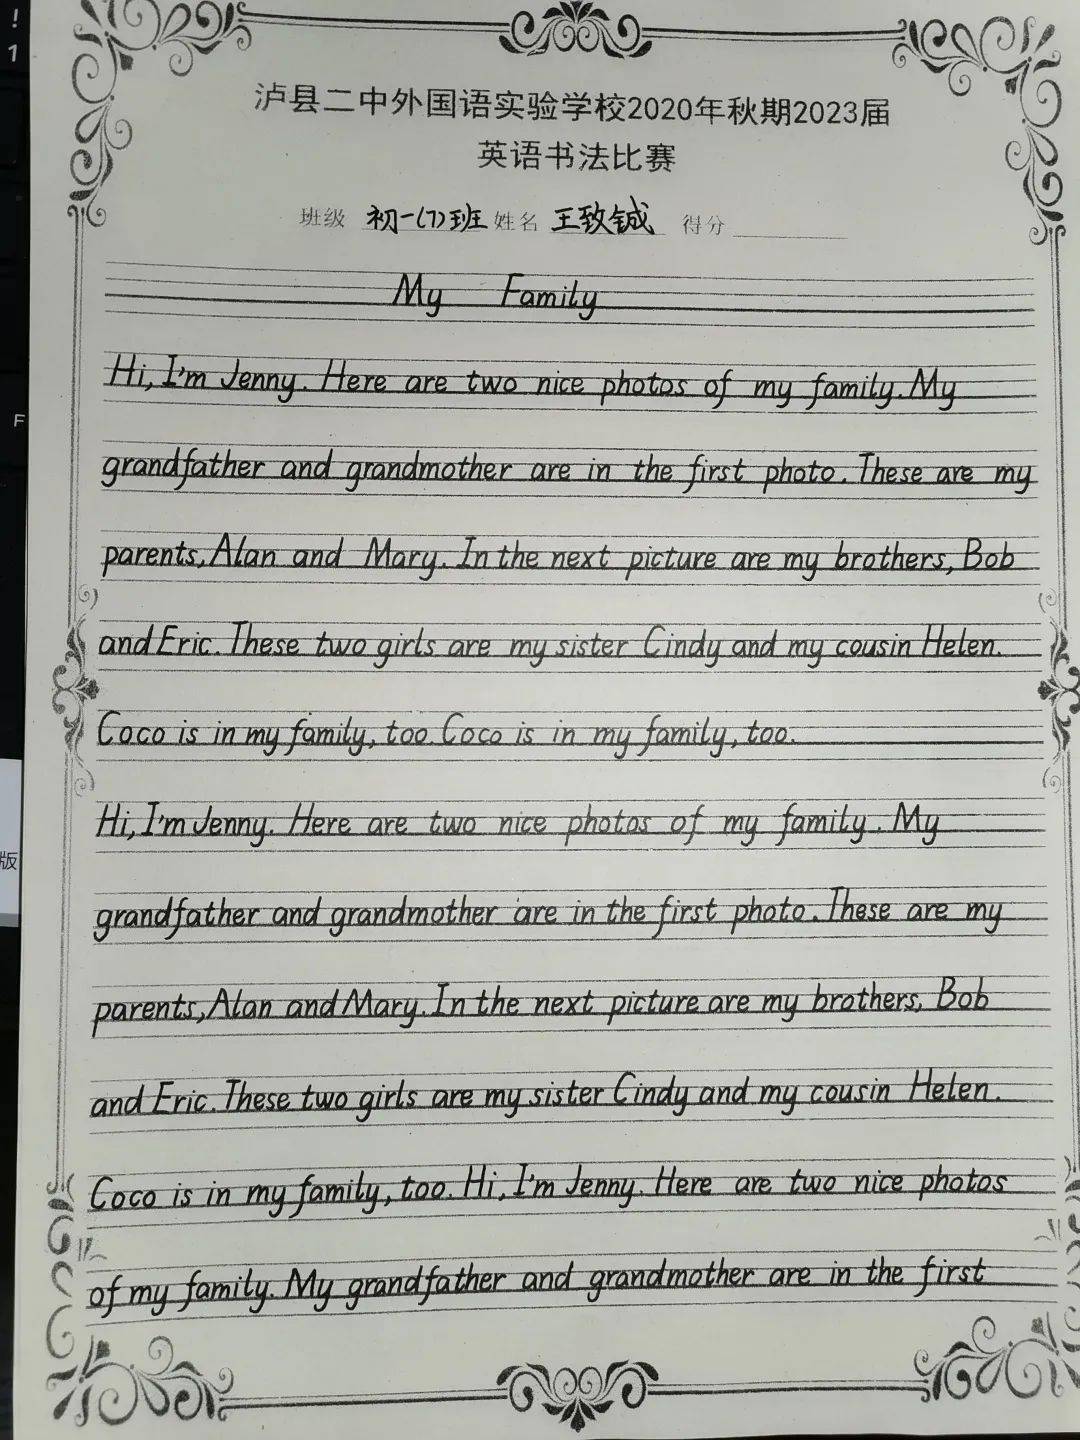 !
1
泸县二中外国语实验学校2020年秋期2023届
英语书法比赛
班级 初一(7)班 姓名 王致铖 得分
F
My Family
Hi, I'm Jenny. Here are two nice photos of my family. My
grandfather and grandmother are in the first photo. These are my
parents, Alan and Mary. In the next picture are my brothers, Bob
and Eric. These two girls are my sister Cindy and my cousin Helen.
Coco is in my family, too. Coco is in my family, too.
Hi, I'm Jenny. Here are two nice photos of my family. My
版
grandfather and grandmother are in the first photo. These are my
parents, Alan and Mary. In the next picture are my brothers, Bob
and Eric. These two girls are my sister Cindy and my cousin Helen.
Coco is in my family, too. Hi, I'm Jenny. Here are two nice photos
of my family. My grandfather and grandmother are in the first